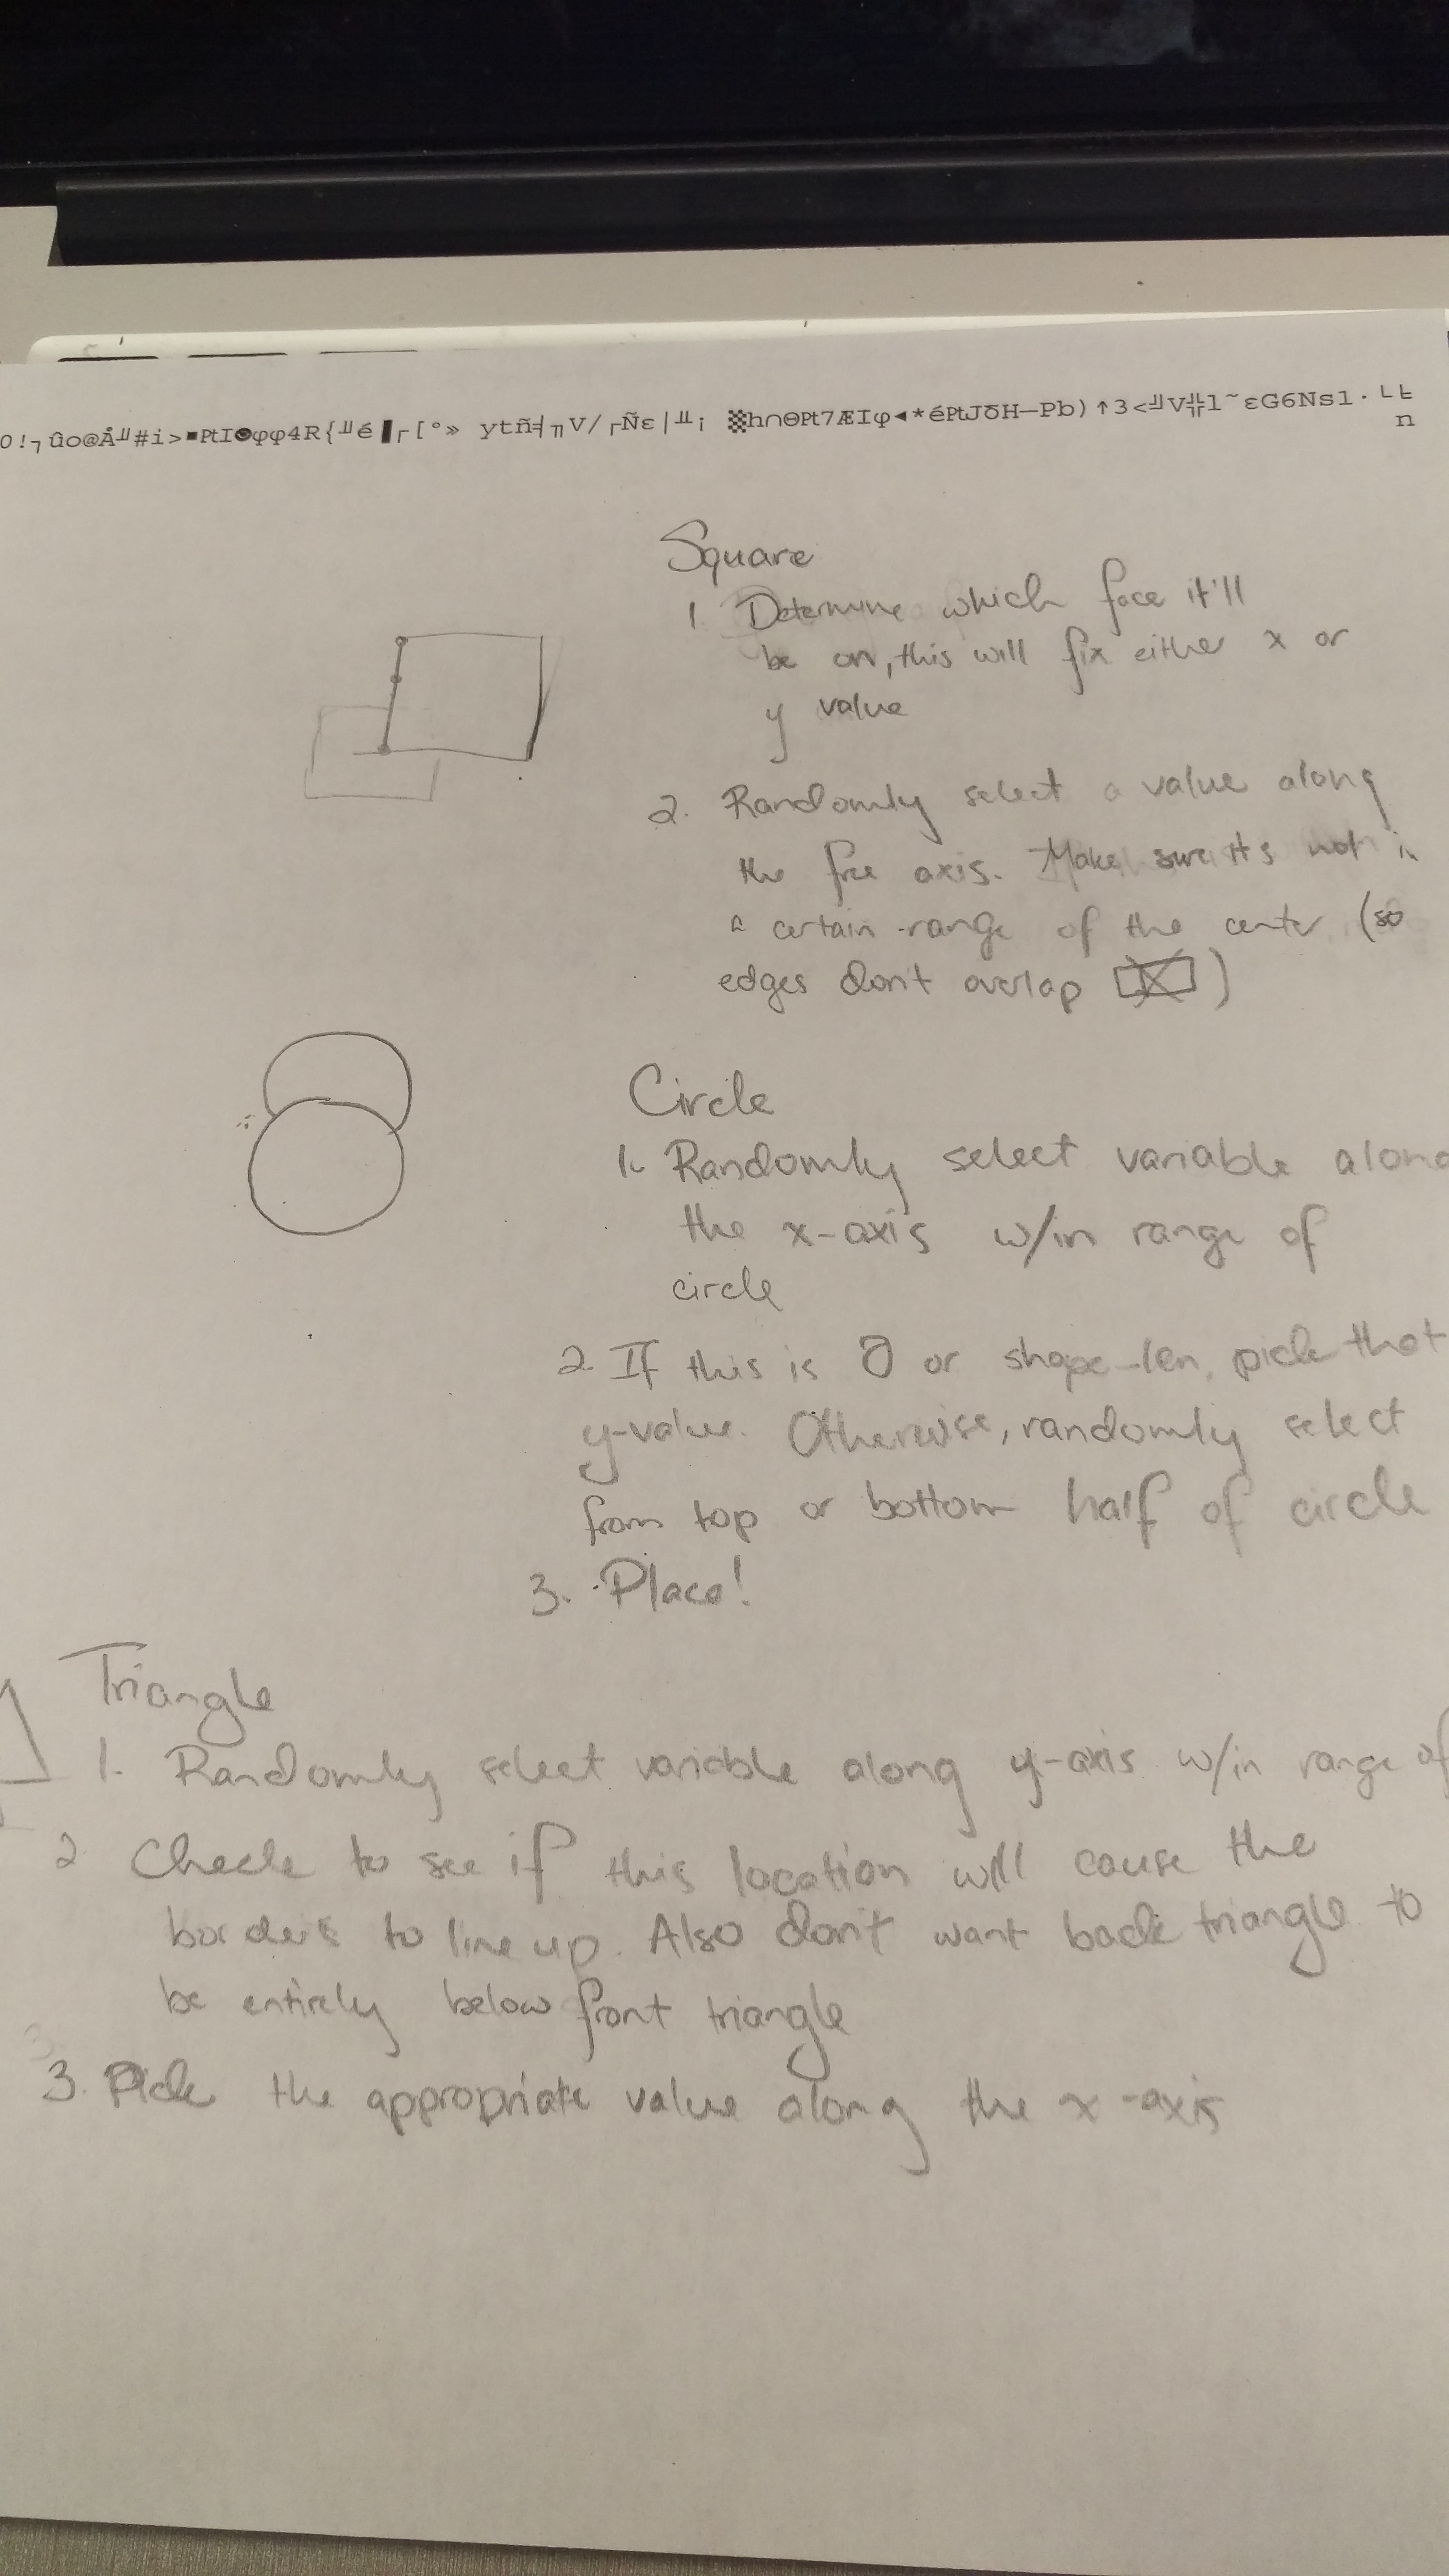 0!┐ûo@Å╜#i>▪₧I☻φφ4R{╜é▐┌[°» ytñ╡╖V/┌Ñε|╨¡ ▓h∩Θ₧7ÆIφ◄*é₧JδH─Pb)↑3<╝V╬l~εG6Ns1·└╘
n
Square
1 Determine which face it'll
be on, this will fix either x or
y value
2. Randomly select a value along
the free axis. Make sure its not in
a certain range of the center (so
edges don't overlap )
Circle
1. Randomly select variable along
the x-axis w/in range of
circle
2. If this is 0 or shape-len, pick that
y-value. Otherwise, randomly select
from top or bottom half of circle
3. Place!
Triangle
1. Randomly select variable along y-axis w/in range of
2 Check to see if this location will cause the
borders to line up. Also don't want back triangle to
be entirely below front triangle
3. Pick the appropriate value along the x-axis